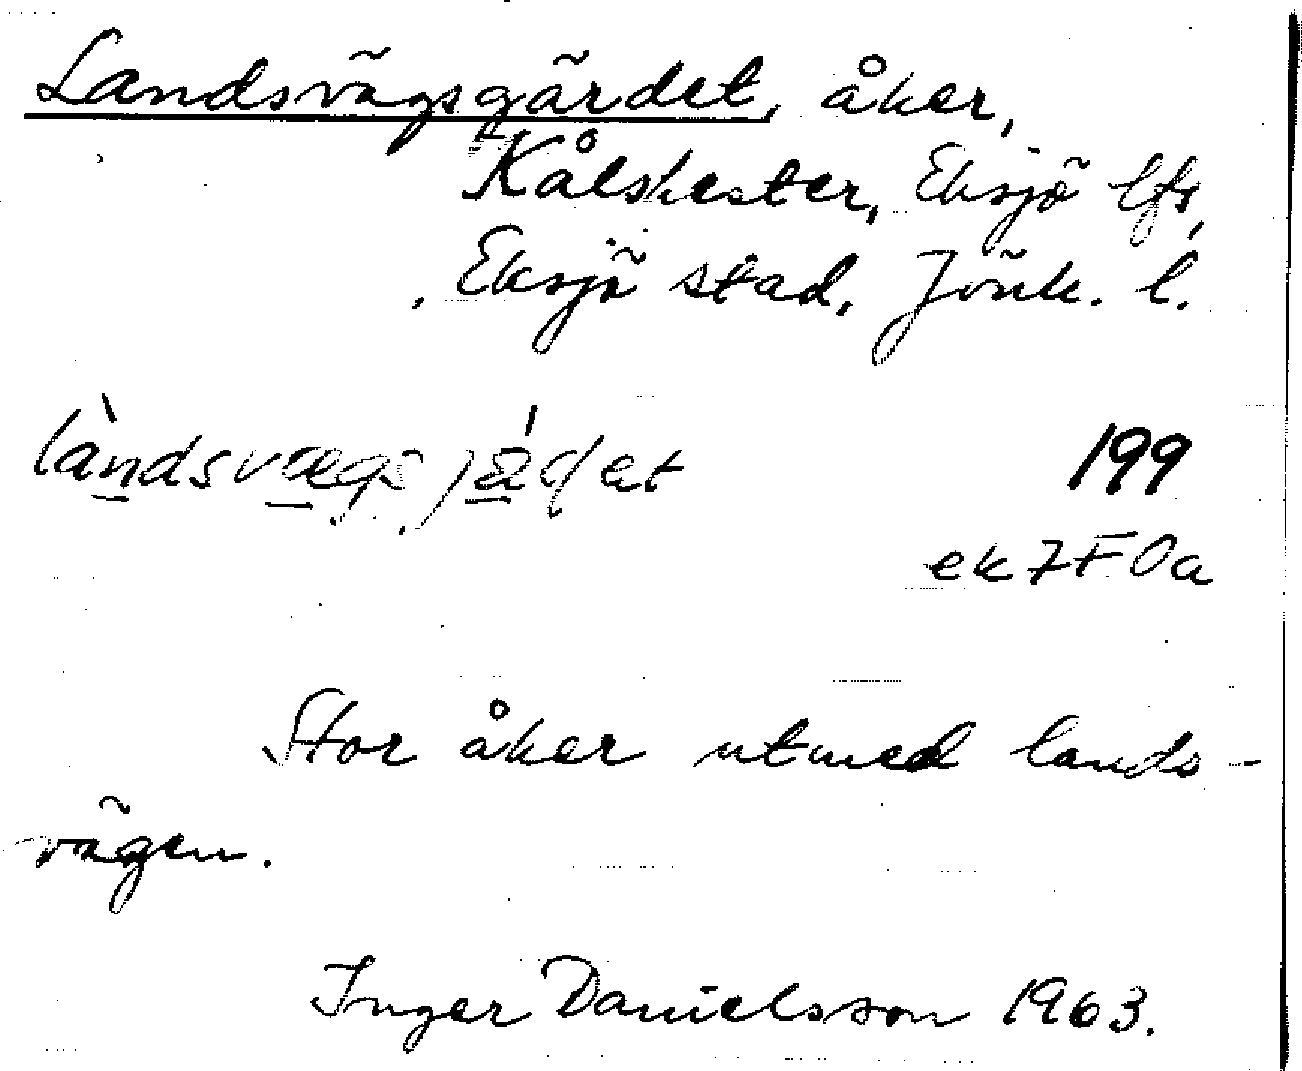 Landsvägsgärdet, åker,
Kålskester, Eksjö lfs,
Eksjö stad, Jönk. l.
199
ek 7F 0a
Stor åker utmed lands-
vägen.
Inger Danielsson 1963.